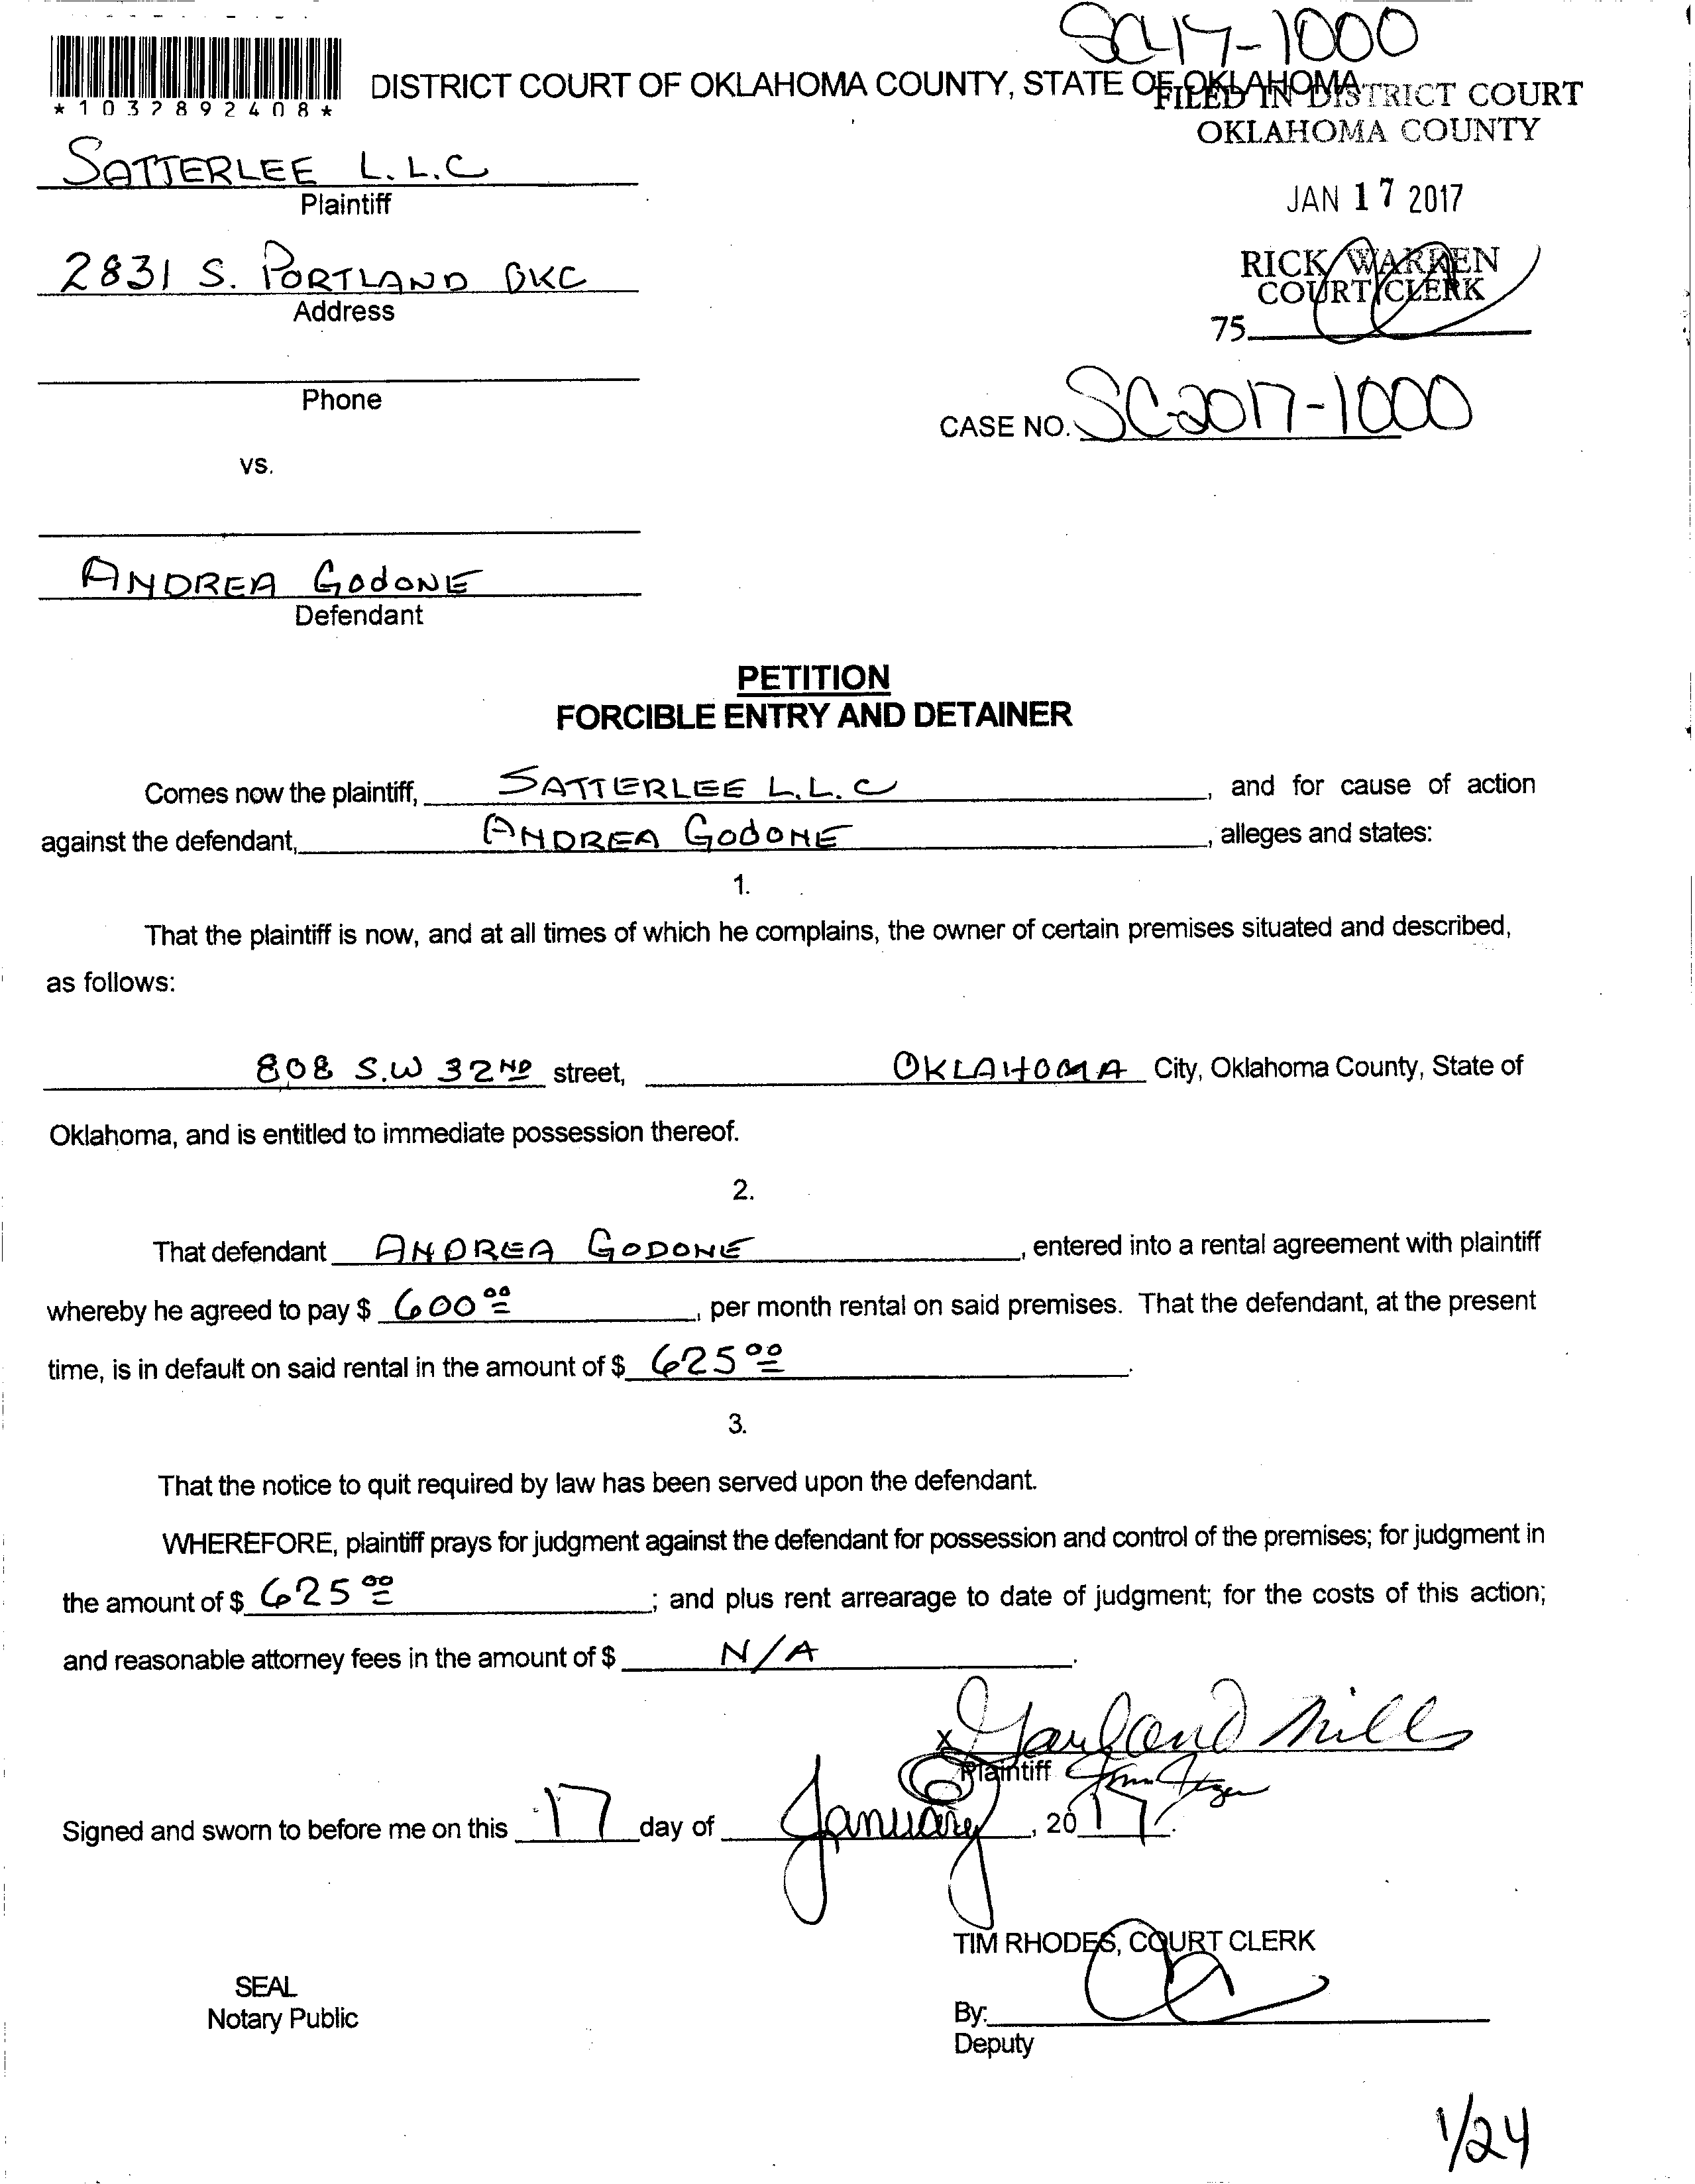 SC17-1000
*1032892408*
DISTRICT COURT OF OKLAHOMA COUNTY, STATE OF OKLAHOMA
FILED IN DISTRICT COURT
OKLAHOMA COUNTY
SATTERLEE L.L.C
Plaintiff
JAN 17 2017
2831 S. PORTLAND OKC
Address
RICK WARREN
COURT CLERK
75
Phone
CASE NO. SC-2017-1000
vs.
ANDREA GODONE
Defendant
PETITION
FORCIBLE ENTRY AND DETAINER
Comes now the plaintiff, SATTERLEE L.L.C, and for cause of action
against the defendant, ANDREA GODONE, alleges and states:
1.
That the plaintiff is now, and at all times of which he complains, the owner of certain premises situated and described,
as follows:
808 S.W 32ND street, OKLAHOMA City, Oklahoma County, State of
Oklahoma, and is entitled to immediate possession thereof.
2.
That defendant ANDREA GODONE, entered into a rental agreement with plaintiff
whereby he agreed to pay $ 600 00, per month rental on said premises. That the defendant, at the present
time, is in default on said rental in the amount of $ 625 00.
3.
That the notice to quit required by law has been served upon the defendant.
WHEREFORE, plaintiff prays for judgment against the defendant for possession and control of the premises; for judgment in
the amount of $ 625 00; and plus rent arrearage to date of judgment; for the costs of this action;
and reasonable attorney fees in the amount of $ N/A.
X Garland Mills
Plaintiff
Signed and sworn to before me on this 17 day of January, 2017.
TIM RHODES, COURT CLERK
SEAL
Notary Public
By:
Deputy
1/24